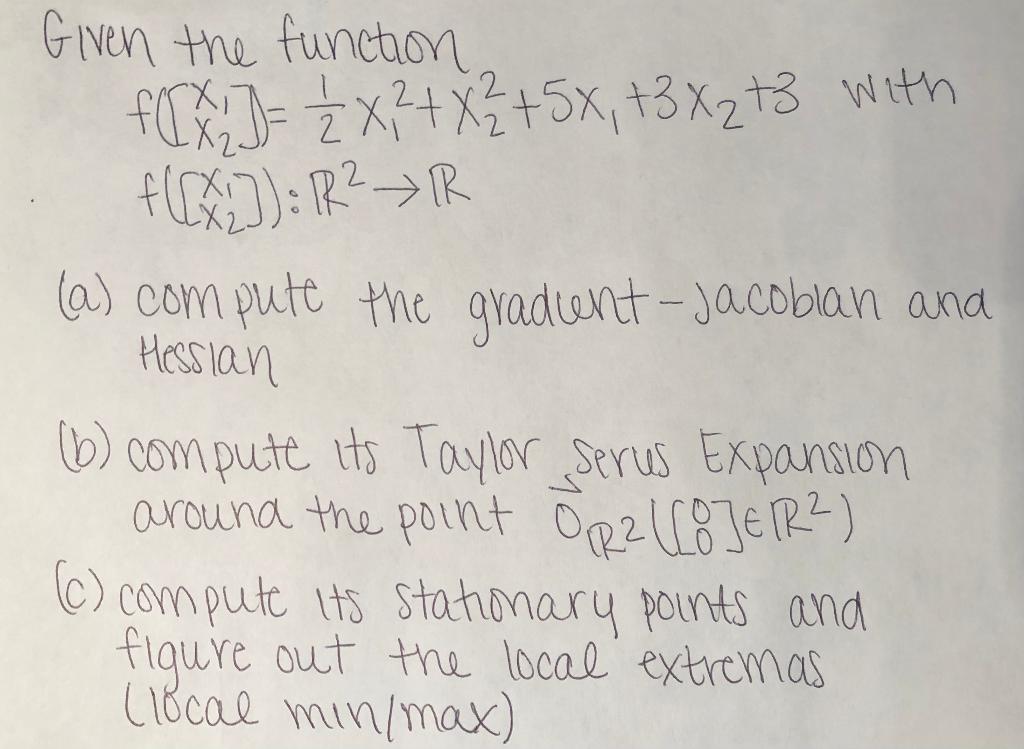 Given the function
f([x₁ x₂])= 1/2 x₁²+x₂²+5x₁+3x₂+3 with
f([x₁ x₂]):ℝ²→ℝ
(a) compute the gradient-Jacobian and
Hessian
(b) compute its Taylor Series Expansion
around the point 0⃗ℝ2([0 0]∈ℝ²)
(c) compute its stationary points and
figure out the local extremas
(local min/max)